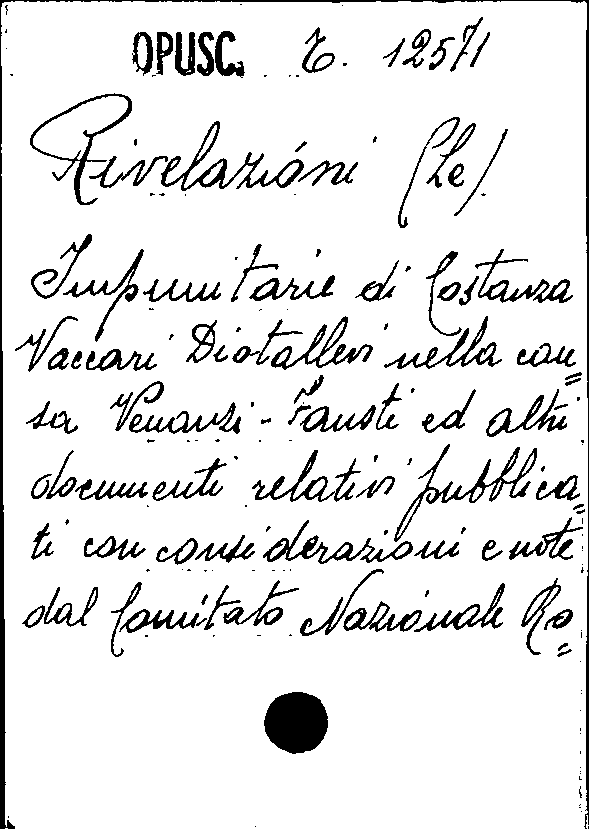 OPUSC. E. 12571
Rivelazióni (Le)
Impunitarie di Costanza
Vaccari Diotallevi nella cau=
sa Venanzi-Fausti ed altri
documenti relativi pubblica=
ti con considerazioni e note
dal Comitato Nazionale Ro=